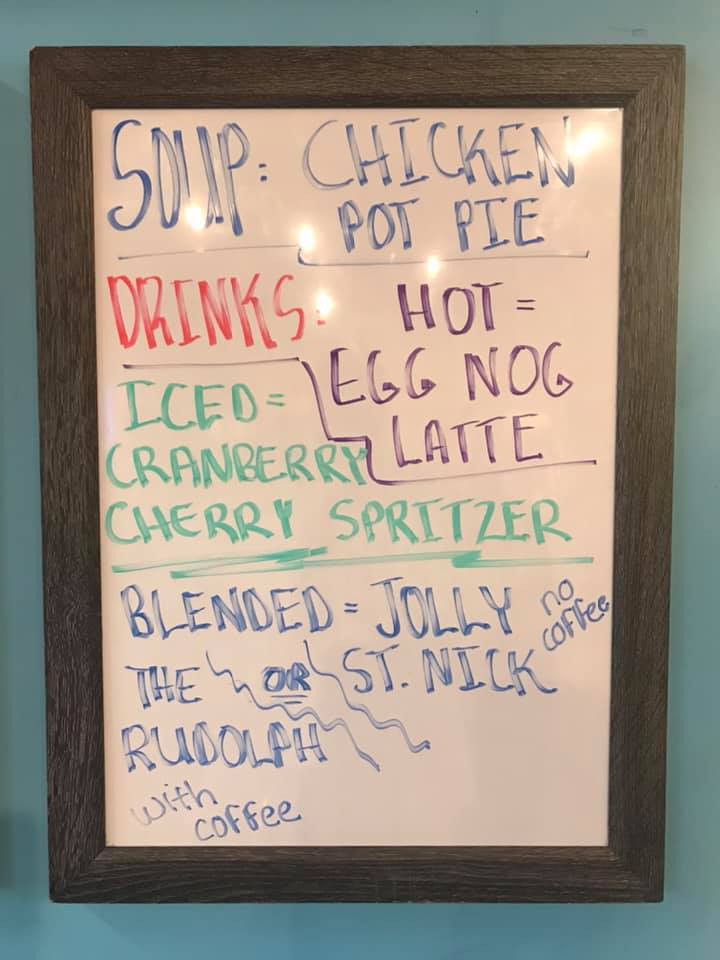 SOUP: CHICKEN
POT PIE
DRINKS:
HOT =
EGG NOG
LATTE
ICED =
CRANBERRY
CHERRY SPRITZER
BLENDED = JOLLY
ST. NICK
no
coffee
OR
THE
RUDOLPH
with
coffee